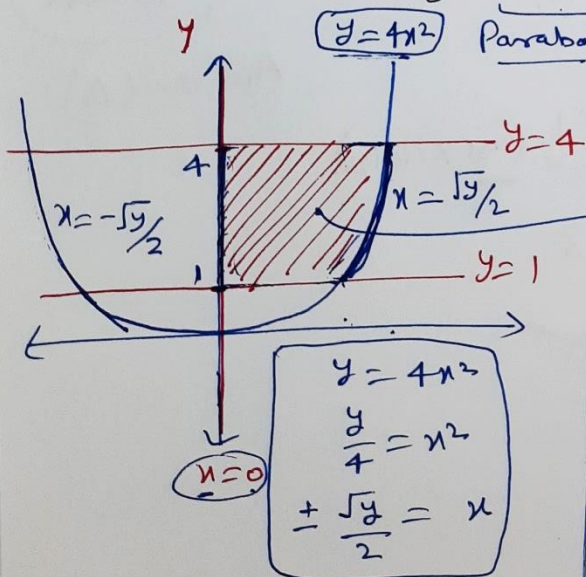 y
y = 4x²
Parabo
y = 4
4
x = -√y/2
x = √y/2
1
y = 1
x = 0
y = 4x²
y/4 = x²
± √y/2 = x